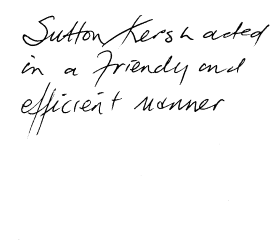 Sutton Kersh acted
in a friendly and
efficient manner